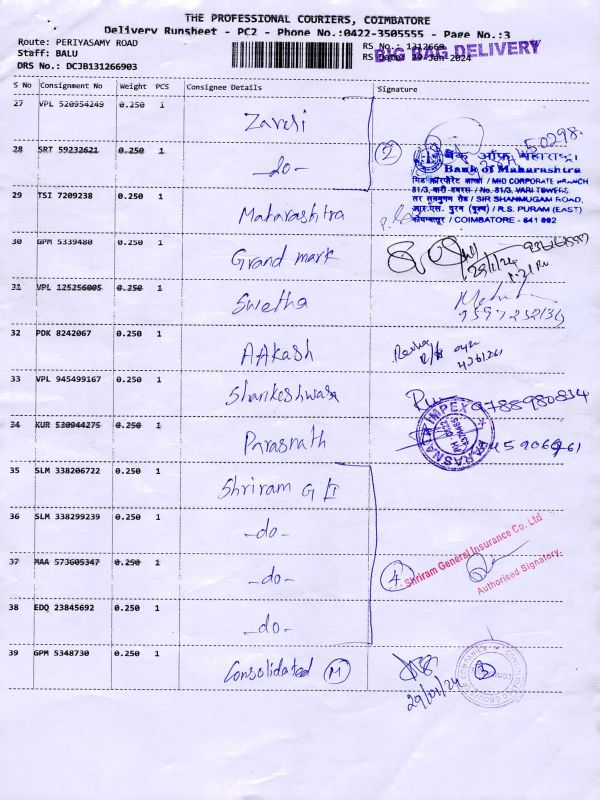 THE PROFESSIONAL COURIERS, COIMBATORE
Delivery Runsheet - PC2 - Phone No.:0422-3505555 - Page No.:3
Route: PERIYASAMY ROAD
Staff: BALU
DRS No.: DCJB131266903
RS No.: 1312669
RS Date: 29-Jan-2024
BIG BAG DELIVERY
S No Consignment No Weight PCS Consignee Details Signature
27 VPL 520954249 0.250 1 Zaveri
28 SRT 59232621 0.250 1 -do-
2
50298
बैंक ऑफ महाराष्ट्रा
Bank of Maharashtra
/ MID CORPORATE BRANCH
81/3, / No. 81/3, VARI TOWERS
/ SIR SHANMUGAM ROAD,
/ R.S. PURAM (EAST)
/ COIMBATORE - 641 002
29 TSI 7209238 0.250 1 Maharashtra
30 GPM 5339480 0.250 1 Grand mark
31 VPL 125256005 0.250 1 Swetha
32 PDK 8242067 0.250 1 AAkash
33 VPL 945499167 0.250 1 Shankeshwara
9788980834
34 KUR 530944275 0.250 1 Parasnath
PARASNATH IMPEX
35 SLM 338206722 0.250 1 Shriram G I
36 SLM 338299239 0.250 1 -do-
37 MAA 573605347 0.250 1 -do-
4
Shriram General Insurance Co. Ltd
Authorised Signatory
38 EDQ 23845692 0.250 1 -do-
39 GPM 5348730 0.250 1 Consolidated M
29/01/24
3